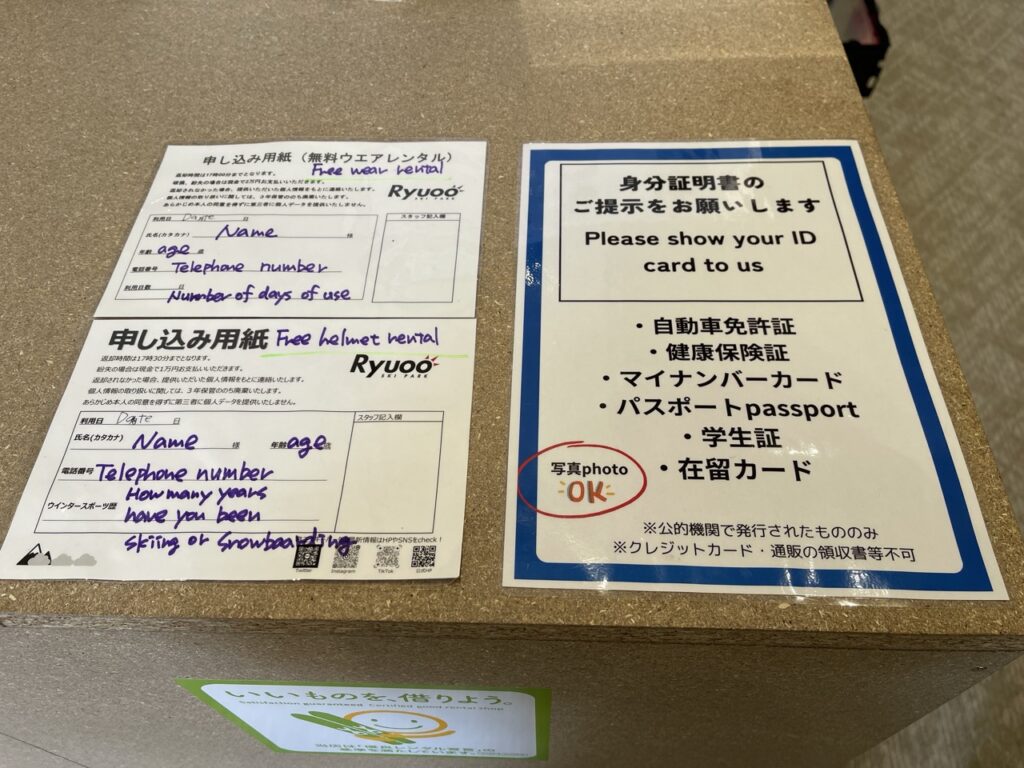 申し込み用紙（無料ウエアレンタル）
Free wear rental
返却時間は17時00分までとなります。
破損、紛失の場合は現金で2万円お支払いいただきます。
返却されなかった場合、提供いただいた個人情報をもとに連絡いたします。
個人情報の取り扱いに関しては、3年保管ののち廃棄いたします。
あらかじめ本人の同意を得ずに第三者に個人データを提供いたしません。
Ryuoo
SKI PARK
利用日 Date 日
スタッフ記入欄
氏名(カタカナ) Name 様
年齢 age 歳
電話番号 Telephone number
利用日数 日
Number of days of use
申し込み用紙 Free helmet rental
返却時間は17時30分までとなります。
紛失の場合は現金で1万円お支払いいただきます。
返却されなかった場合、提供いただいた個人情報をもとに連絡いたします。
個人情報の取り扱いに関しては、3年保管ののち廃棄いたします。
あらかじめ本人の同意を得ずに第三者に個人データを提供いたしません。
Ryuoo
SKI PARK
利用日 Date 日
スタッフ記入欄
氏名(カタカナ) Name 様 年齢 age 歳
電話番号 Telephone number
ウインタースポーツ歴 How many years
have you been
skiing or snowboarding
新情報はHPやSNSをcheck！
Twitter Instagram TikTok 公式HP
身分証明書の
ご提示をお願いします
Please show your ID
card to us
・自動車免許証
・健康保険証
・マイナンバーカード
・パスポートpassport
・学生証
・在留カード
写真photo
OK
※公的機関で発行されたもののみ
※クレジットカード・通販の領収書等不可
いいものを、借りよう。
Satisfaction guaranteed Certified good rental shop